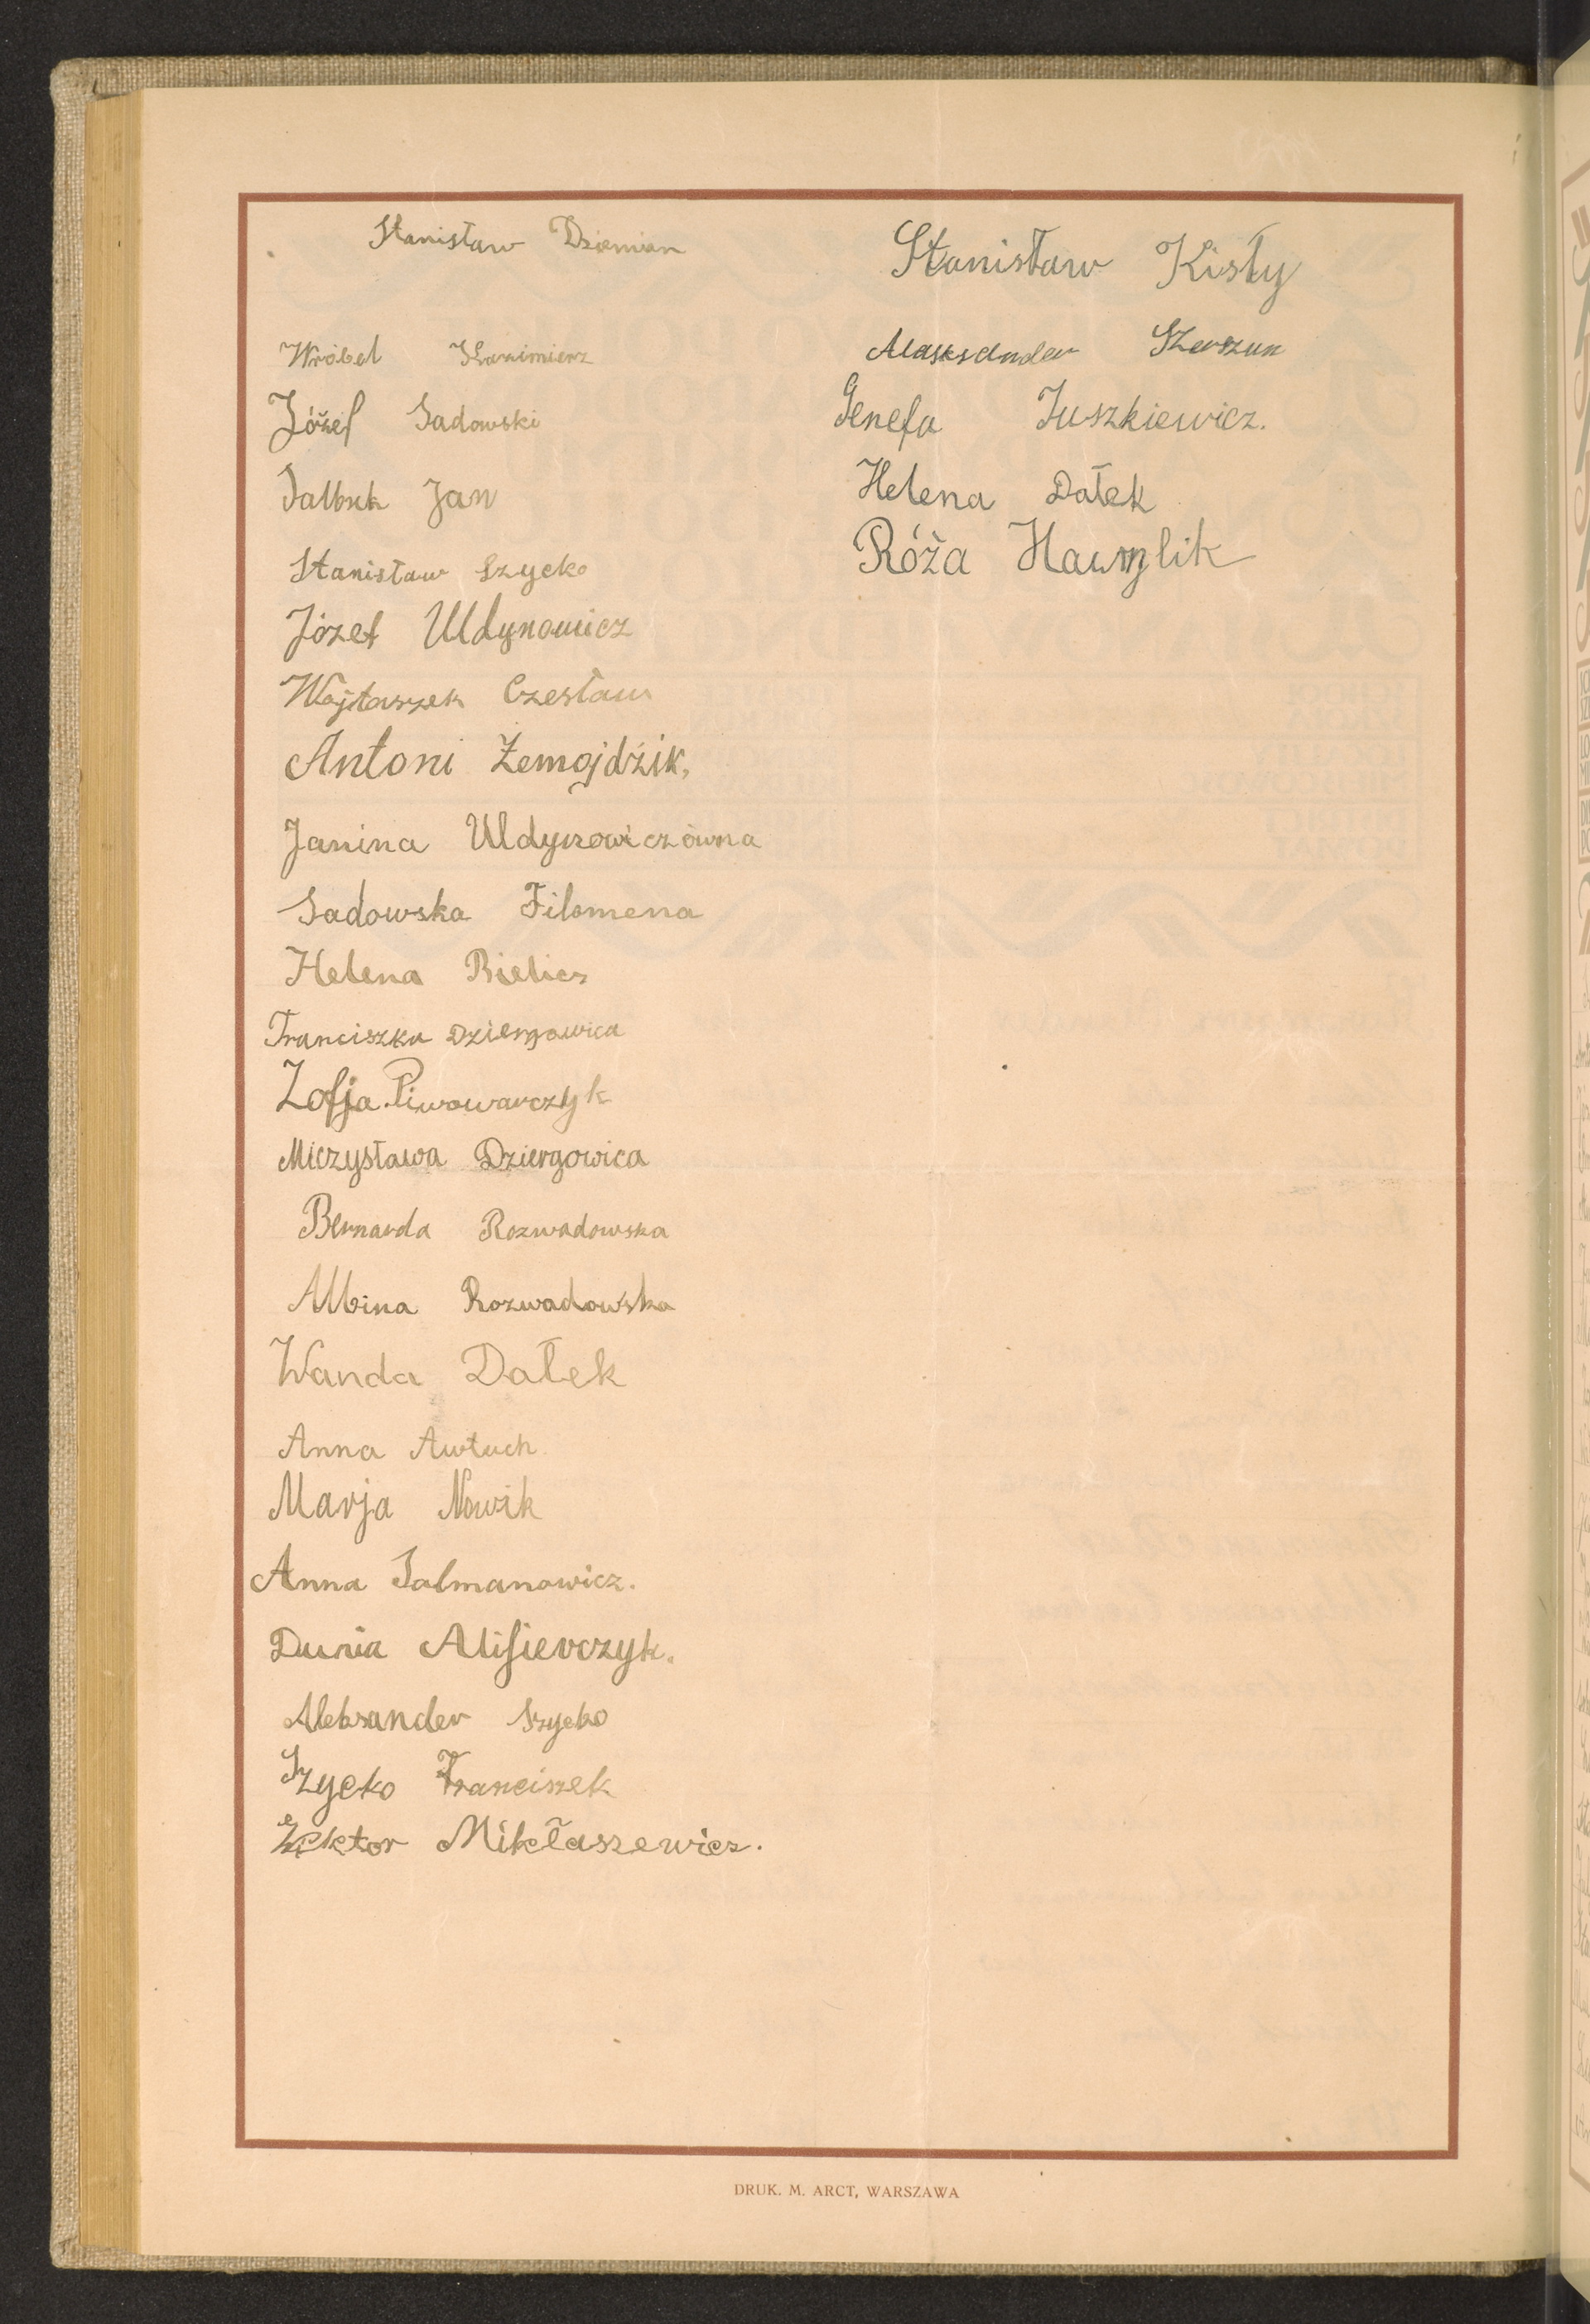 Stanisław Dziemian
Wróbel Kazimierz
Józef Sadowski
Jan
Stanisław Szycko
Józef Uldynowicz
Wojtaszek Czesław
Antoni Żemojdźik,
Janina Uldynowiczówna
Sadowska Filomena
Helena Bielicz
Franciszka Dziergowica
Zofja Piwowarczyk
Mieczysława Dziergowica
Bernarda Rozwadowska
Albina Rozwadowska
Wanda Dałek
Anna Awtuch
Marja Nowik
Anna Salmanowicz.
Dunia Alisierczyk.
Aleksander Szycko
Szycko Franciszek
Mikłaszewicz.
Stanisław Kisły
Alasksander Szerszun
Genefa Juszkiewicz.
Helena Dałek
Róża Hawrylik
DRUK. M. ARCT, WARSZAWA